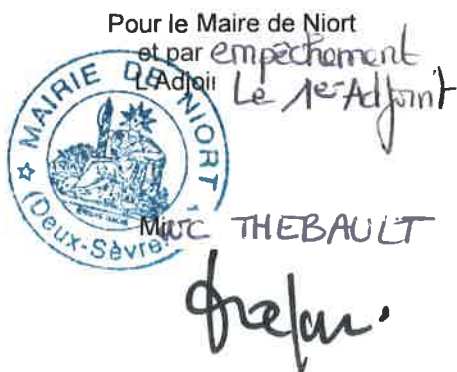 Pour le Maire de Niort
et par empêchement
L'Adjoi
Le 1er Adjoint
MAIRIE DE NIORT
(Deux-Sèvres)
THEBAULT